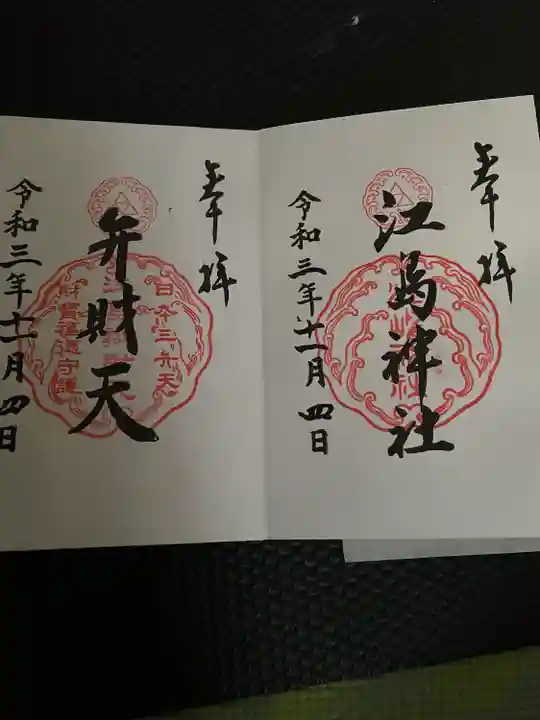 奉拝
江島神社
令和三年十一月四日
奉拝
弁財天
日本三弁天
財寶福徳守護
令和三年十一月四日